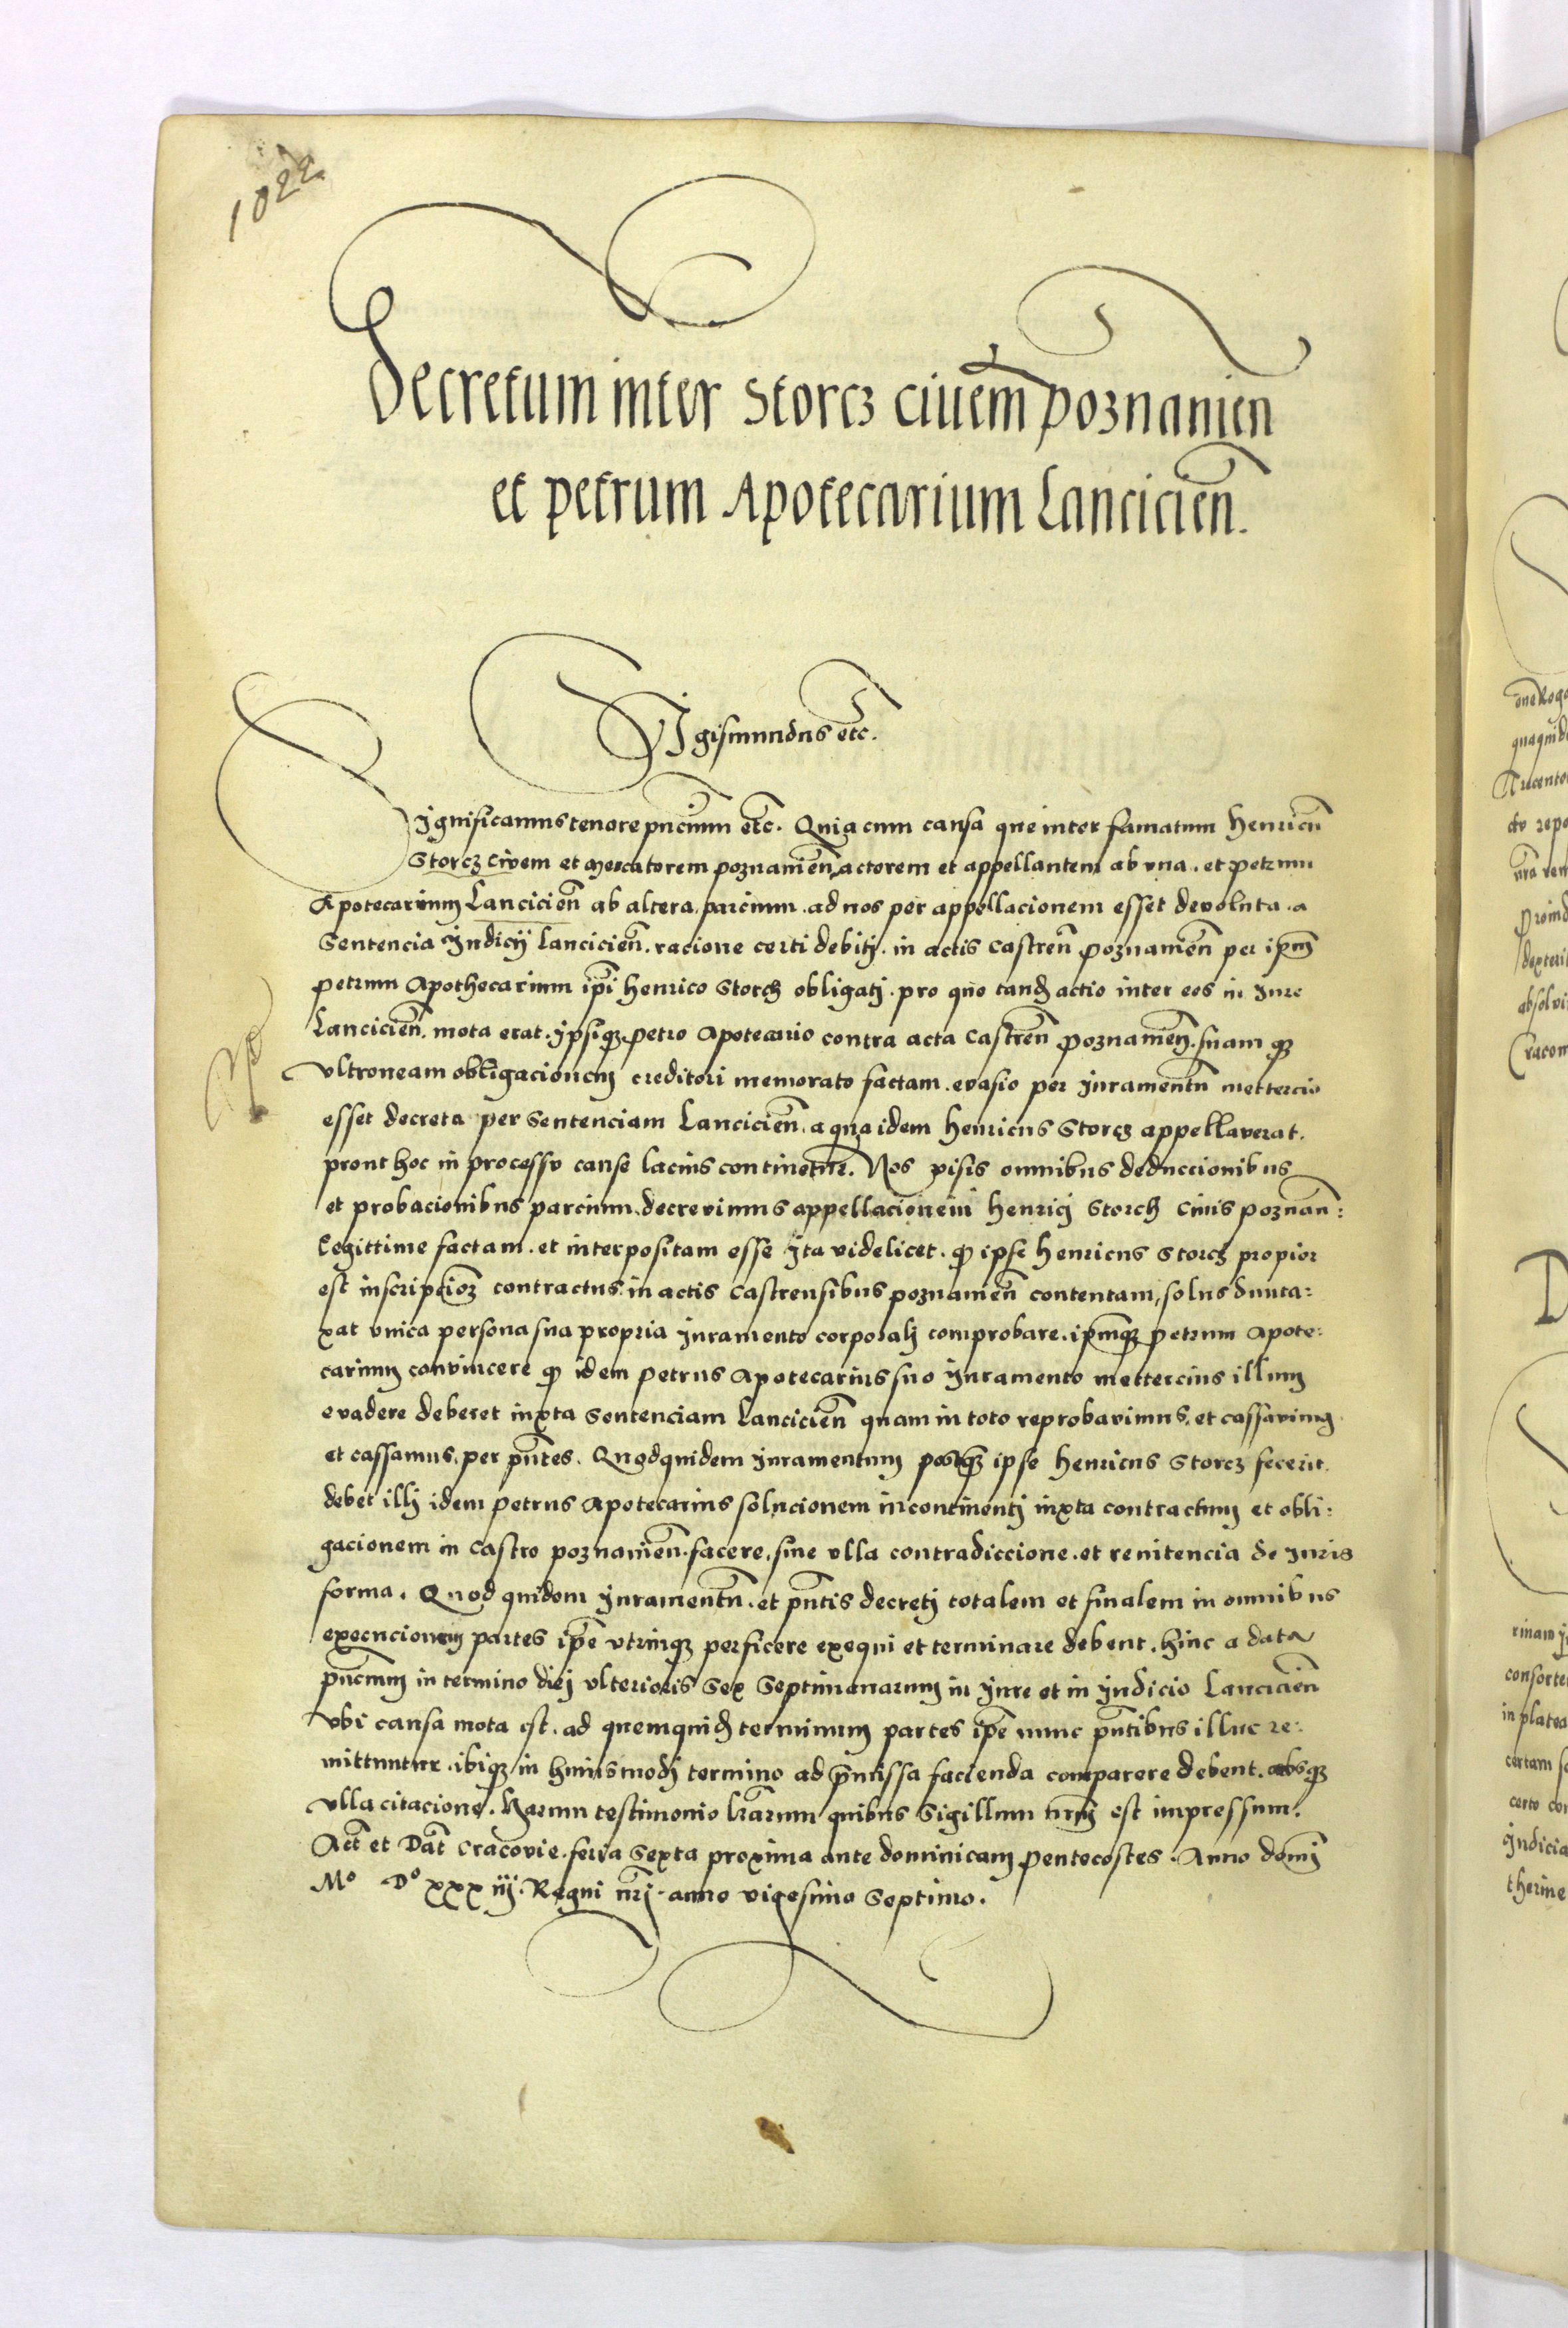 1022.
Decretum inter Storcz civem poznanien
et petrum Apotecarium Lancicien̄.
Sigismundus etc̄.
Significamus tenore pn̄cium etc̄. Quia cum causa que inter famatum Henricū
Storcz Civem et mercatorem poznanien̄, actorem et appellantem ab vna. et petrum
Apotecarium Lancicien̄ ab altera. parcium. ad nos per appellacionem esset devoluta. a
Sentencia Judicij Lancicien̄. racione certi debitj. in actis Castren̄ poznanien̄ per ip̄m
petrum Apothecarium ip̄i Henrico Storch obligatj. pro quo tandē actio inter eos in Jure
Lancicien̄. mota erat. ypsiqꝫ petro Apotecario contra acta Castren̄ poznanien̄. suam qꝫ
vltroneam obligacionem creditori memorato factam. evasio per Juramentū mettercio
esset decreta per Sentenciam Lancicien̄. a qua idem Henricus Storcz appellaverat.
prout hoc in processu cause lacius continetur. Nos visis omnibus deduccionibus
et probacionibus parcium. decrevimus appellacionem Henricj Storch Civis poznan̄:
Legittime factam. et interpositam esse Jta videlicet. qꝫ ipse Henricus Storcz propior
est inscripcioē contractus in actis castrensibus poznanien̄ contentam, solus dunta:
xat vnica persona sua propria Juramento corporalj comprobare. ip̄mqꝫ petrum Apote:
carium convincere qꝫ idem petrus Apotecarius suo Juramento mettercius illum
evadere deberet iuxta Sentenciam Lancicien̄ quam in toto reprobavimus, et cassavimus
et cassamus. per pn̄tes. Quodquidem Juramentum postqꝫ ipse Henricus Storcz fecerit.
debet illj idem petrus Apotecarius solucionem incontinentj iuxta contractum et obli:
gacionem in Castro poznanien̄. facere. sine vlla contradiccione. et renitencia de Juris
forma. Quod quidem Juramentū. et pn̄tis decretj totalem et finalem in omnibus
execucionem partes ip̄e vtrinqꝫ perficere exequi et terminare debent. Hinc a data
pn̄cium in termino diej vlterioris Sex Septimanarum in Jure et in Judicio Lancicien̄
vbi causa mota est. ad quemquidē terminum partes ip̄e nunc pn̄tibus illuc re:
mittuntur. ibiqꝫ in huiusmodj termino ad p̄missa facienda comparere debent. absqꝫ
vlla citacione. Harum testimonio lr̄arum quibus Sigillum nr̄m est impressum.
Act̄ et Dat̄ Cracovie. feria Sexta proxima ante dominicam Pentecostes. Anno domj
Mo Do xxx iij. Regni nr̄j anno vigesimo Septimo.